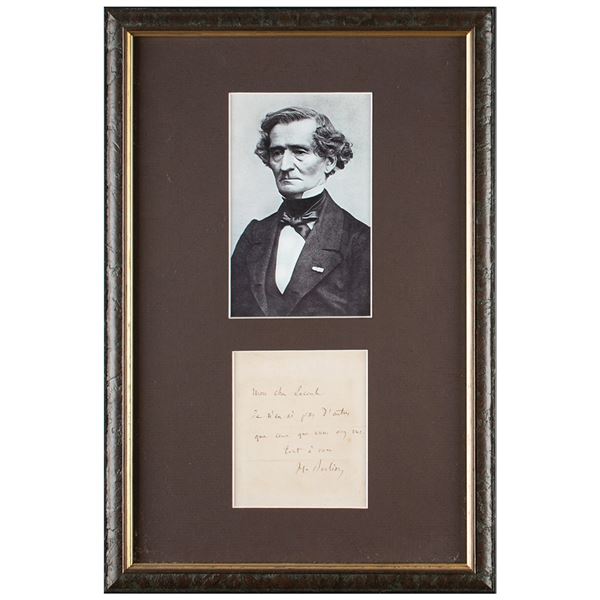 Mon cher Lecourt
Je n'en ai pas d'autres
que ceux que vous avez vus
tout à vous
H. Berlioz